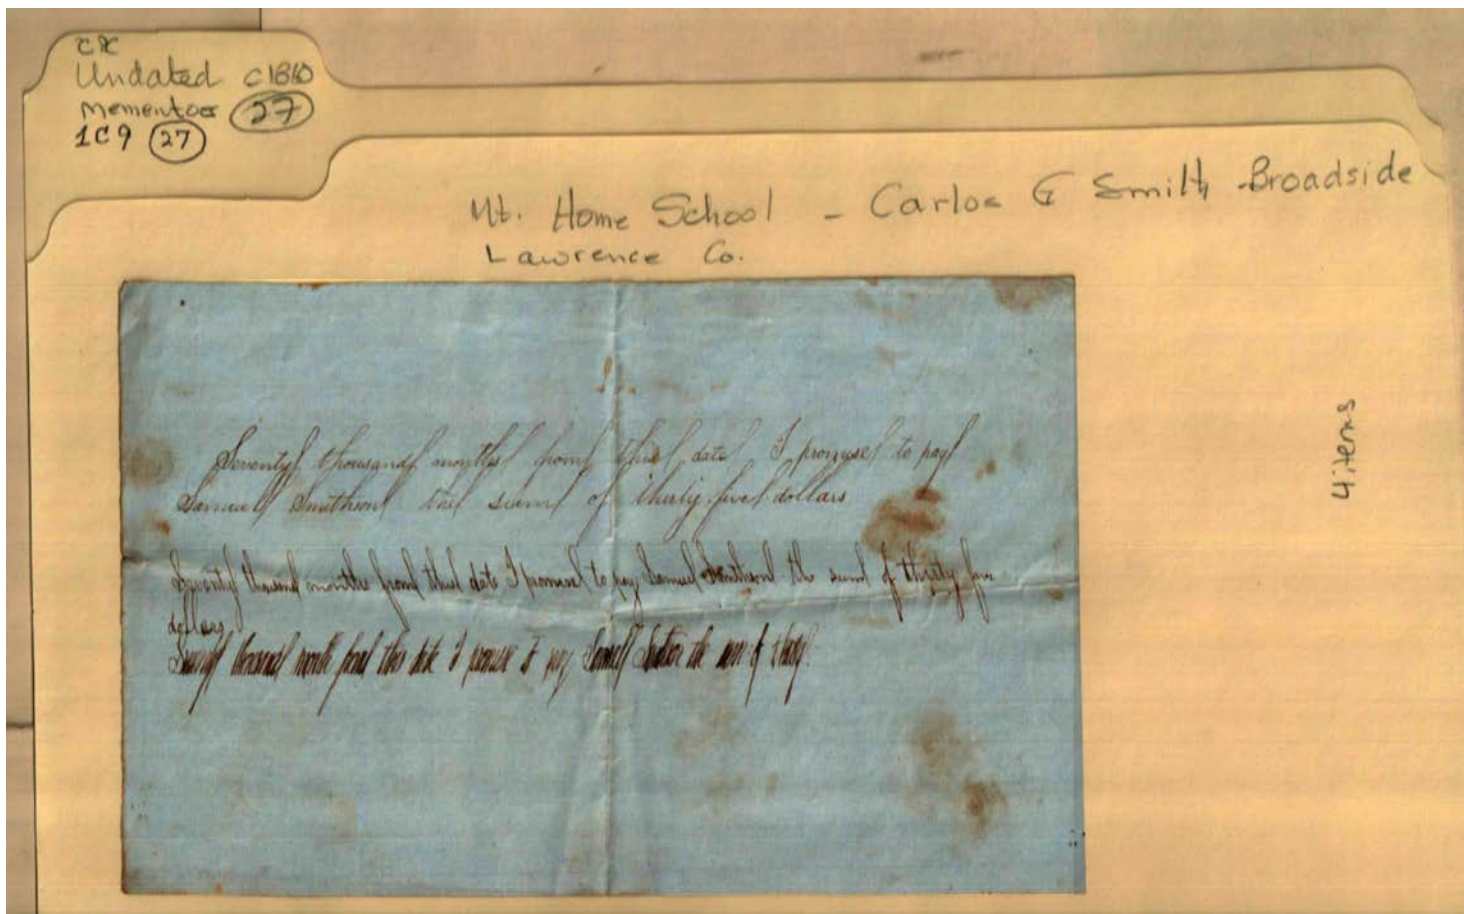 CX
Undated c1860
Mementoes 27
1C9 27
Mt. Home School - Carlos G Smith Broadside
Lawrence Co.
4 items
Seventy thousand months from this date I promise to pay
Samuel Smithson the sum of thirty five dollars
Seventy thousand months from this date I promise to pay Samuel Smithson the sum of thirty five
dollars
Seventy thousand month from this date I promise to pay Samuel the sum of thirty